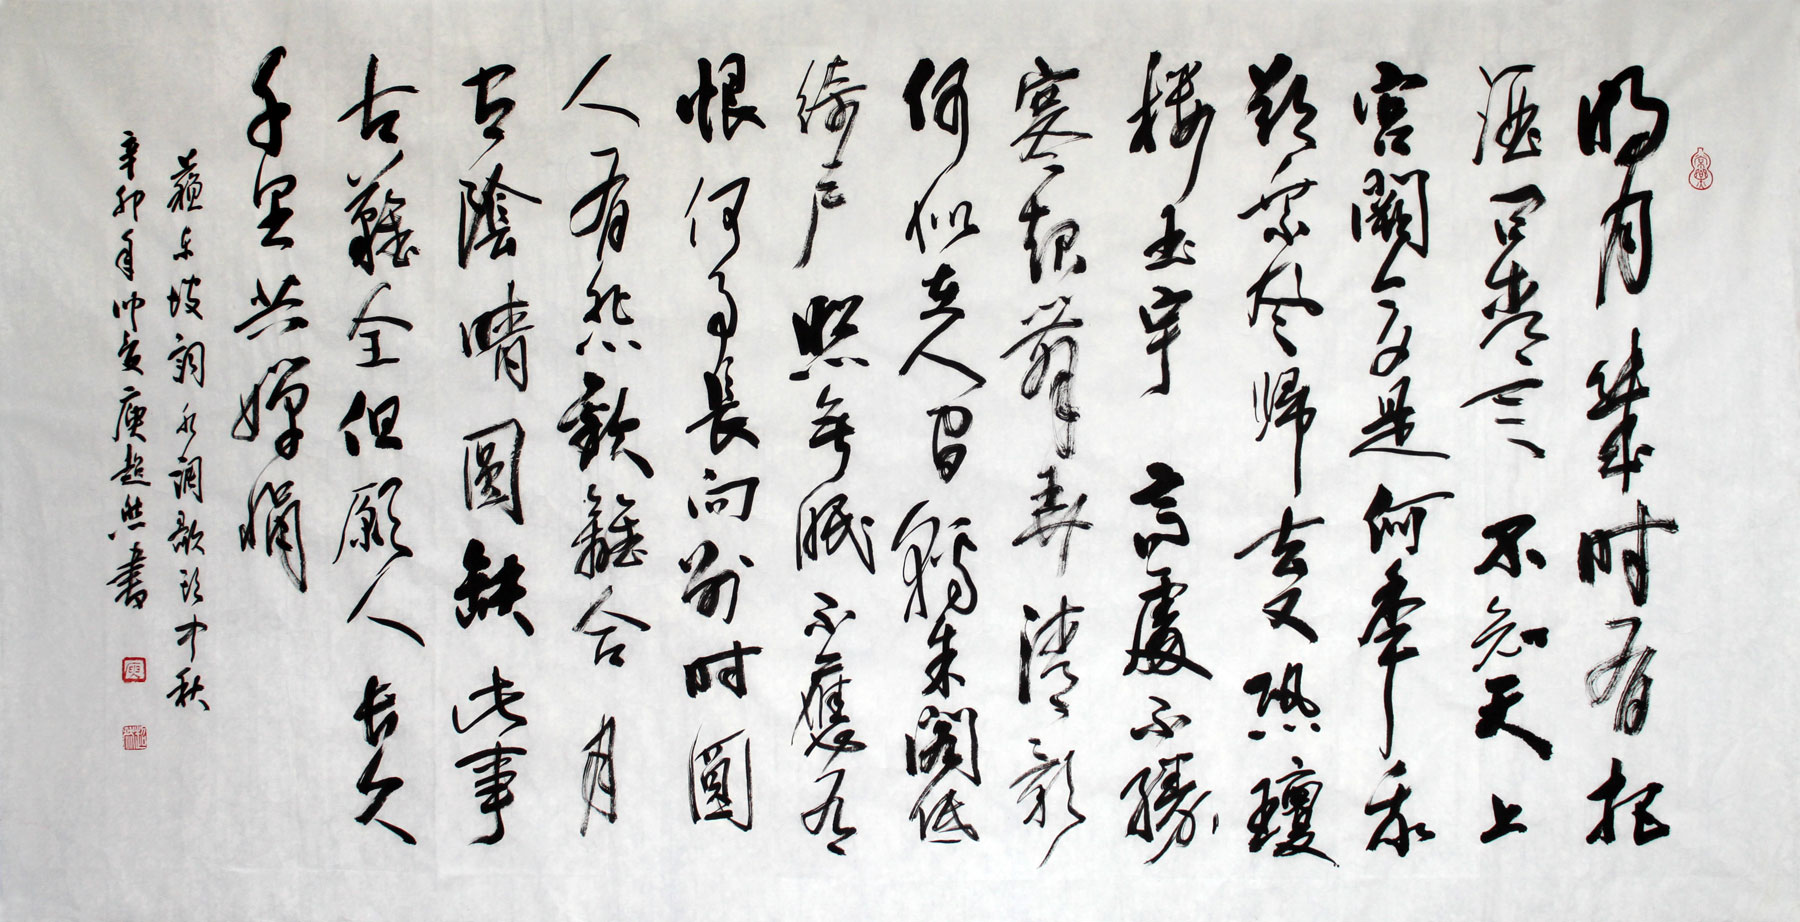 明月幾时有把
酒问青天不知天上
宫闕今夕是何年我
欲乘风归去又恐瓊
楼玉宇高處不勝
寒起舞弄清影
何似在人间转朱阁低
绮户照無眠不應有
恨何事長向别时圓
人有悲歡離合月
有陰晴圓缺此事
古難全但願人长久
千里共嬋娟
蘇东坡詞水调歌头中秋
辛卯年仲夏庾超然書